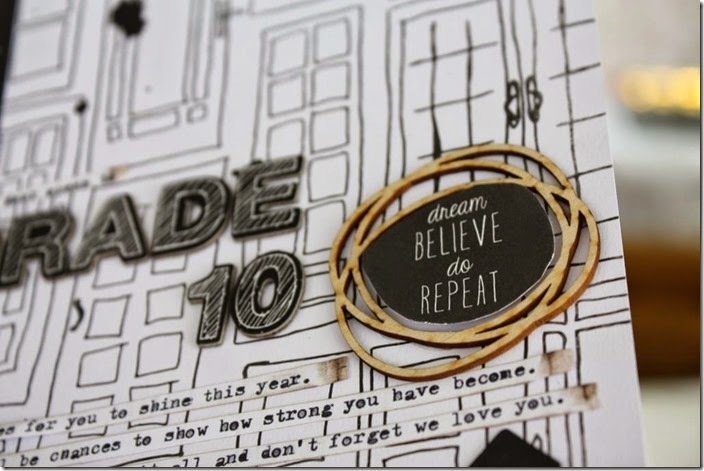 RADE
10
dream
BELIEVE
do
REPEAT
es for you to shine this year.
be chances to show how strong you have become.
all and don't forget we love you.